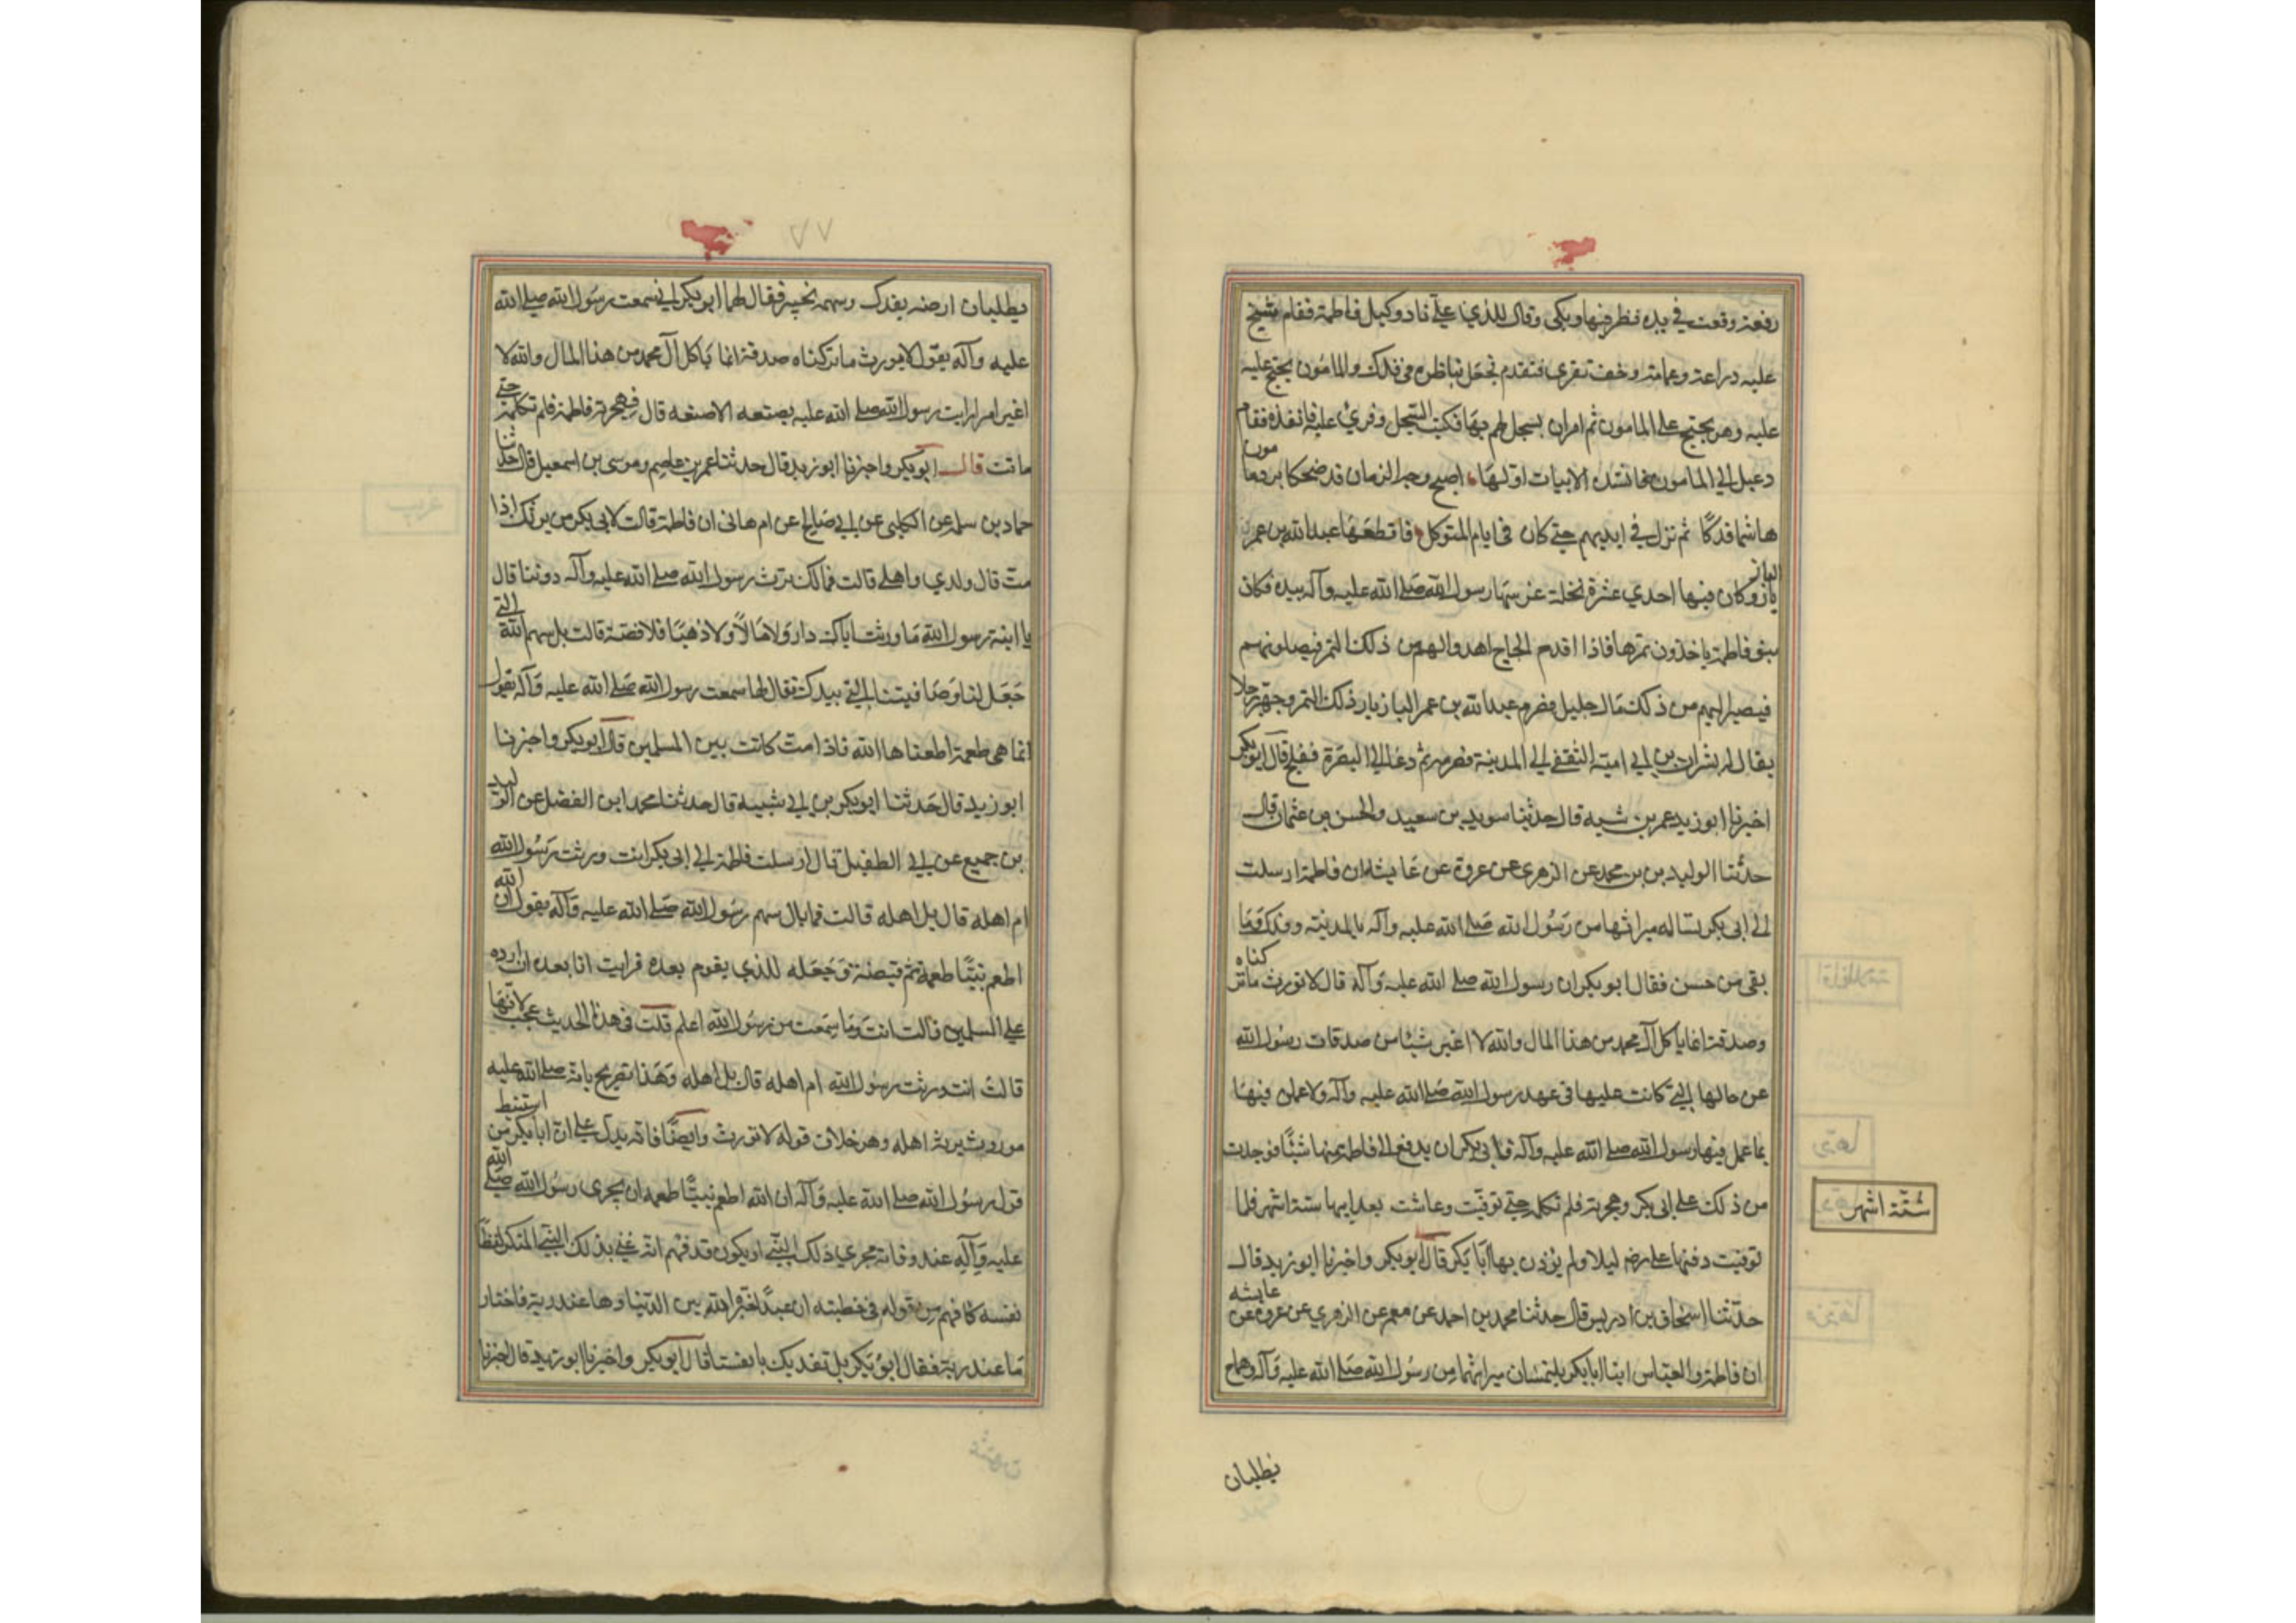 رقعة وقعت في يده فنظر فيها وبكى وقال للذي على ناد وكيل فاطمة فقام شيخ
عليه دراعة وعمامة وخف تغرى فتقدم فجعل يناظره في فدك والمامون يحتج عليه
عليه وهو يحتج على المامون ثم امر ان يسجل لهم بها فكتب السجل وقري عليه فانفذه فقام
دعبل الى المامون فانشده الابيات اولها اصبح وجه الزمان قد ضحكا برد مامون
هاشما فدكا ثم نزل في ايديهم حتى كان في ايام المتوكل فاقطعها عبدالله بن عمر
البازيار وكان فيها احدي عشرة نخلة غرسها رسول الله صلى الله عليه وآله بيده فكان
بنو فاطمة ياخذون تمرها فاذا اقدم الحاج اهدوا لهم من ذلك التمر فيصلونهم
فيصير اليهم من ذلك مال جليل فصرم عبدالله بن عمر البازيار ذلك التمر وجه رجلا
يقال له بشران بن ابي امية الثقفي الى المدينة فصرمه ثم دعا الى البصرة ففلج قال ابوبكر
اخبرنا ابو زيد عمر بن شبه قال حدثنا سويد بن سعيد والحسن بن عثمان قال
حدثنا الوليد بن بن محمد عن الزهري عن عروة عن عايشة ان فاطمة ارسلت
الى ابى بكر تساله ميراثها من رسول الله صلى الله عليه وآله بالمدينة وفدك وما
بقى من خمس فقال ابو بكر ان رسول الله صلى الله عليه وآله قال لا نورث ما تركناه
وصدقة انما ياكل آل محمد من هذا المال والله لا اغير شيئا من صدقات رسول الله
عن حالها التي كانت عليها في عهد رسول الله صلى الله عليه وآله ولا عملن فيها
بما عمل فيها رسول الله صلى الله عليه وآله فابى بكر ان يدفع الى فاطمة منها شيئا فوجدت
من ذلك على ابى بكر وهجرته فلم تكلمه حتى توفيت وعاشت بعد ابيها ستة اشهر فلما
توفيت دفنها علي رضه ليلا ولم يؤذن بها ابا بكر قال ابو بكر واخبرنا ابو زيد قال
حدثنا اسحاق بن ادريس قال حدثنا محمد بن احمد عن معمر عن الزهري عن عروة عن عايشه
ان فاطمة والعباس اتيا ابا بكر يلتمسان ميراثهما من رسول الله صلى الله عليه وآله وهما ح
ستة اشهر
يطلبان
٧٧
يطلبان ارضه بفدك وسهمه بخيبر فقال لهما ابو بكر اني سمعت رسول الله صلى الله
عليه وآله يقول لا نورث ما تركناه صدقة انما ياكل آل محمد من هذا المال والله لا
اغير امرا رايت رسول الله صلى الله عليه يصنعه الا صنعه قال فهجرته فاطمة فلم تكلمه حتى
ماتت قال ابو بكر واخبرنا ابو زيد قال حدثنا عمر بن عاصم وموسى بن اسمعيل قال حدثنا
حماد بن سلمه عن الكلبي عن ابي صالح عن ام هانى ان فاطمة قالت لابى بكر من يرثك اذا
مت قال ولدي واهلي قالت فمالك ترث رسول الله صلى الله عليه وآله دوننا قال
يا ابنة رسول الله ما ورثت اباك دارا ولا مالا ولا ذهبا ولا فضة قالت بل سهم الله التي
جعل لنا وصافيتنا التي بيدك فقال لها سمعت رسول الله صلى الله عليه وآله يقول
انما هي طعمة اطعمناها الله فاذا مت كانت بين المسلمين قال ابو بكر واخبرنا
ابو زيد قال حدثنا ابو بكر بن ابي شيبه قال حدثنا محمد ابن الفضل عن الوليد
بن جميع عن ابي الطفيل قال ارسلت فاطمة الى ابى بكر انت ورثت رسول الله
ام اهله قال بل اهله قالت فما بال سهم رسول الله صلى الله عليه وآله يقول ان الله
اطعم نبيا طعمة ثم قبضه وجعله للذي يقوم بعده فرايت انا بعده ان ارده
على المسلمين قالت انت وما سمعت من رسول الله اعلم قلت في هذا الحديث عجب لانها
قالت انت ورثت رسول الله ام اهله قال بل اهله وهذا تصريح بانه صلى الله عليه
موروث يرثه اهله وهو خلاف قوله لا نورث وايضا فانه يدل على ان ابا بكر استنبط من
قول رسول الله صلى الله عليه وآله ان الله اطعم نبيا طعمة ان يجري رسول الله صلى الله
عليه وآله عند وفاته مجري ذلك النبي او يكون قد فهم انه عنى بذلك النبي المنكر لفظا
نفسه كما فهم من قوله في خطبته ان عبدا خيره الله بين الدنيا وما عند ربه فاختار
ما عند ربه فقال ابو بكر بل نفديك بانفسنا قال ابو بكر واخبرنا ابو زيد قال اخبرنا